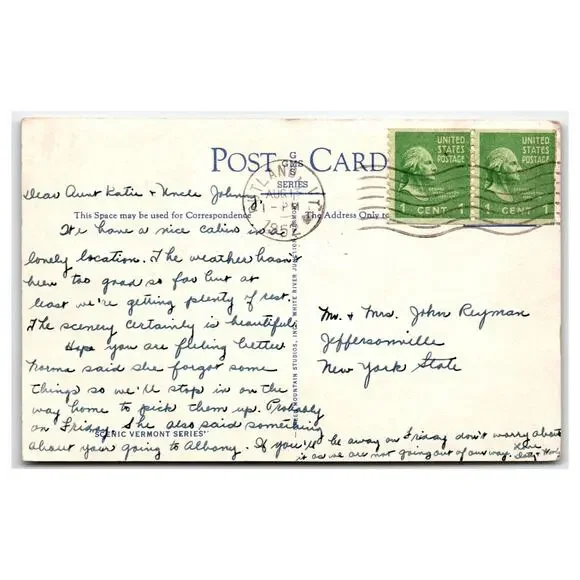 POST CARD
GMS
SERIES
UNITED STATES POSTAGE
1 CENT 1
UNITED STATES POSTAGE
1 CENT 1
RUTLAND, VT.
AUG
1 - PM
1952
Dear Aunt Katie & Uncle Johnny,
This Space may be used for Correspondence
The Address Only to
We have a nice cabin in a
lonely location. The weather hasn't
been too good so far but at
least we're getting plenty of rest.
The scenery certainly is beautiful.
Hope you are feeling better
Norma said she forgot some
things so we'll stop in on the
way home to pick them up. Probably
on Friday. She also said something
about your going to Albany. If you'll be away on Friday don't worry about
it as we are not going out of our way. Love
"SCENIC VERMONT SERIES"
MOUNTAIN STUDIOS, INC., WHITE RIVER JUNCTION, VERMONT
Mr. & Mrs. John Reyman
Jeffersonville
New York State